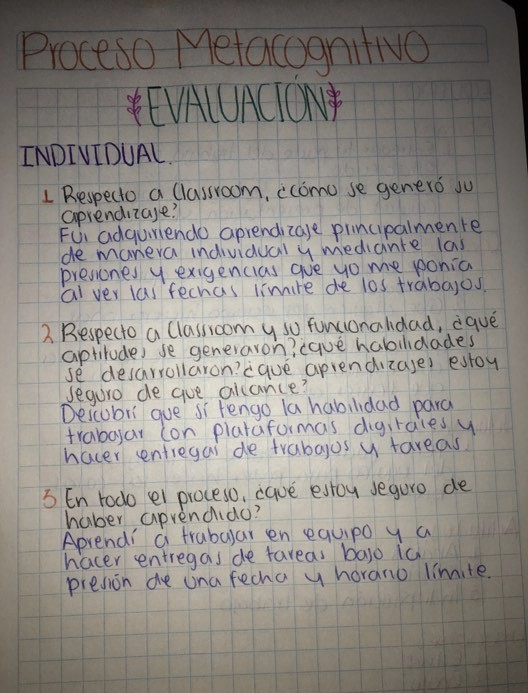 Proceso Metacognitivo
EVALUACIÓN
INDIVIDUAL.
1 Respecto a Classroom, ¿cómo se generó su
aprendizaje?
Fui adquiriendo aprendizaje principalmente
de manera individual y mediante las
presiones y exigencias que yo me ponía
al ver las fechas límite de los trabajos.
2 Respecto a Classroom y su funcionalidad, ¿qué
aptitudes se generaron? ¿qué habilidades
se desarrollaron? ¿qué aprendizajes estoy
seguro de que alcance?
Descubrí que sí tengo la habilidad para
trabajar con plataformas digitales y
hacer entregas de trabajos y tareas.
3 En todo el proceso, ¿qué estoy seguro de
haber aprendido?
Aprendí a trabajar en equipo y a
hacer entregas de tareas bajo la
presión de una fecha y horario límite.